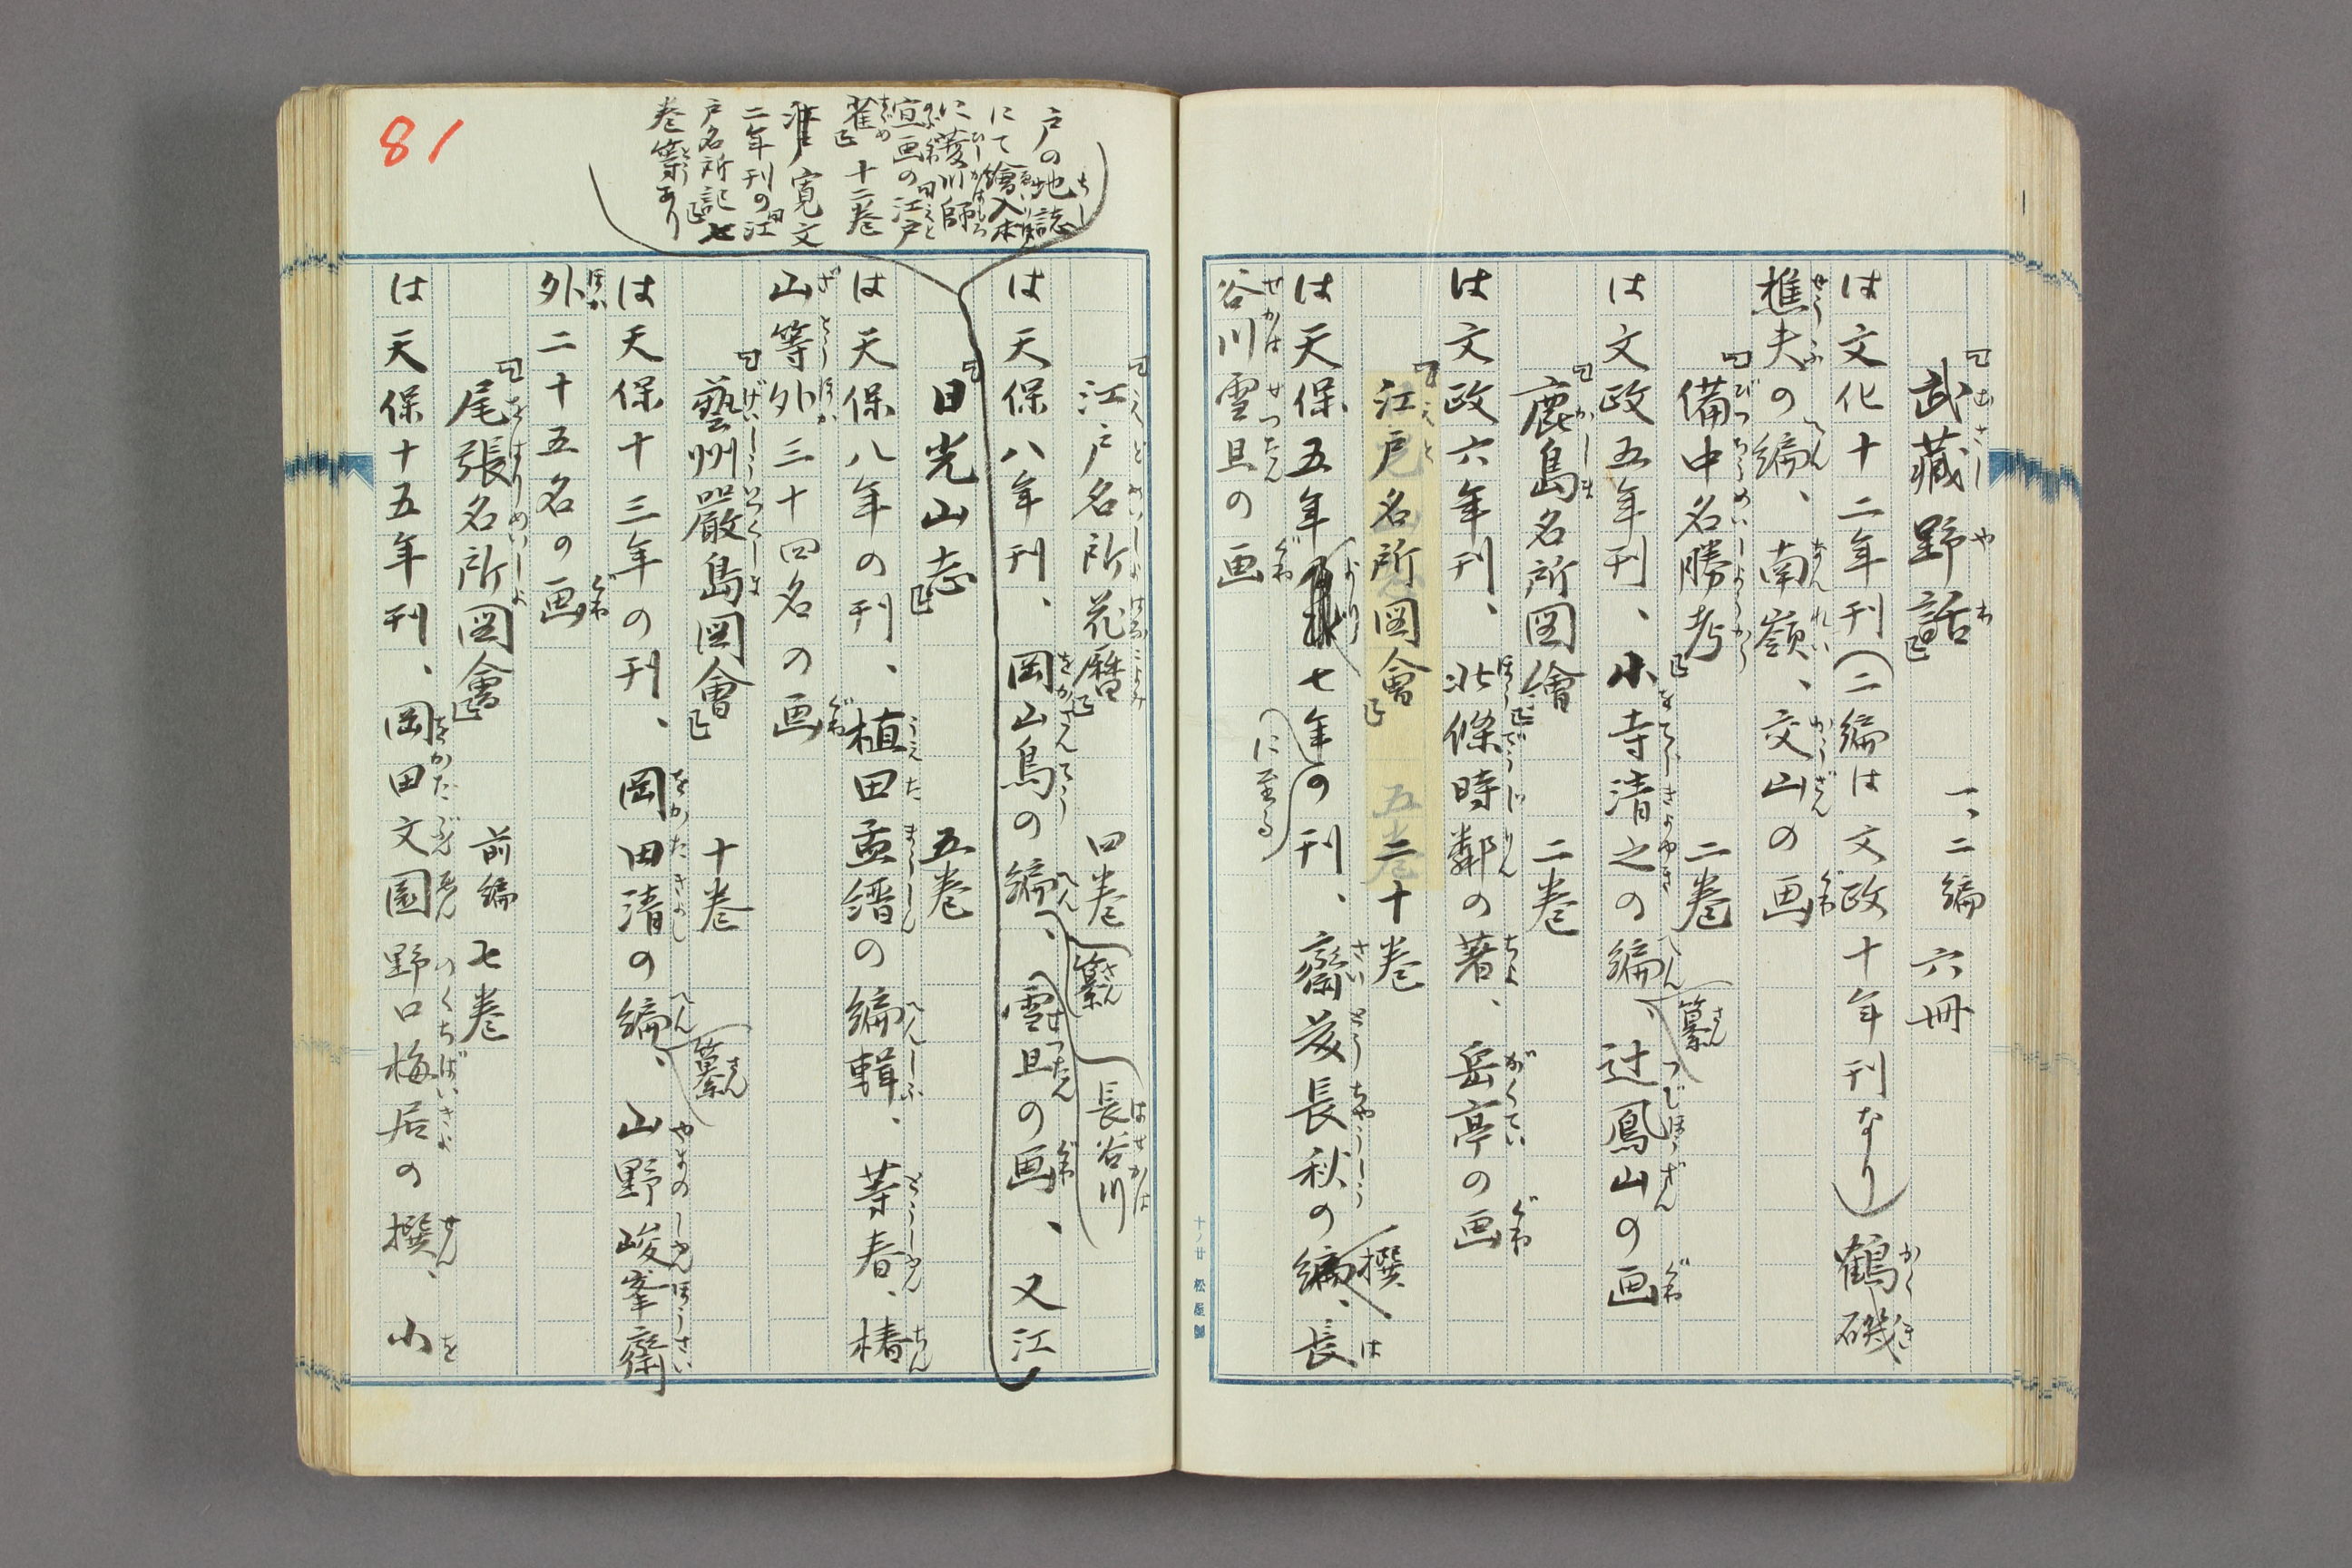 「武藏野話」　一、二編　六冊
は文化十二年刊（二編は文政十年刊なり）鶴磯
樵夫の編、南嶺、交山の画
「備中名勝考」　二巻
は文政五年刊、小寺清之の編、纂　辻鳳山の画
「鹿島名所図繪」　二巻
は文政六年刊、北條時鄰の著、岳亭の画
「江戸名所図會」　二十巻
は天保五年より七年の刊、齋藤長秋の編、撰　長
に至る
谷川雪旦の画
十ノ廿　松屋製
81
戸の地誌
にて繪入本
に菱川師
宣画の「江戸
雀」十二巻
寛文
二年刊の「江
戸名所記」七
巻等あり
「江戸名所花暦」　四巻　纂　長谷川
は天保八年刊、岡山鳥の編、雪旦の画、又江
「日光山志」　五巻
は天保八年の刊、植田孟縉の編輯、等春、椿
山等外三十四名の画
「藝州嚴島図會」　十巻
は天保十三年の刊、岡田清の編、纂　山野峻峯齋
外二十五名の画
「尾張名所図會」　前編　七巻
は天保十五年刊、岡田文園野口梅居の撰、小